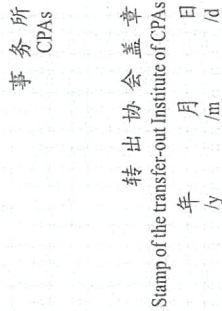 事 务 所
CPAs
转 出 协 会 盖 章
Stamp of the transfer-out Institute of CPAs
年 月 日
/y /m /d